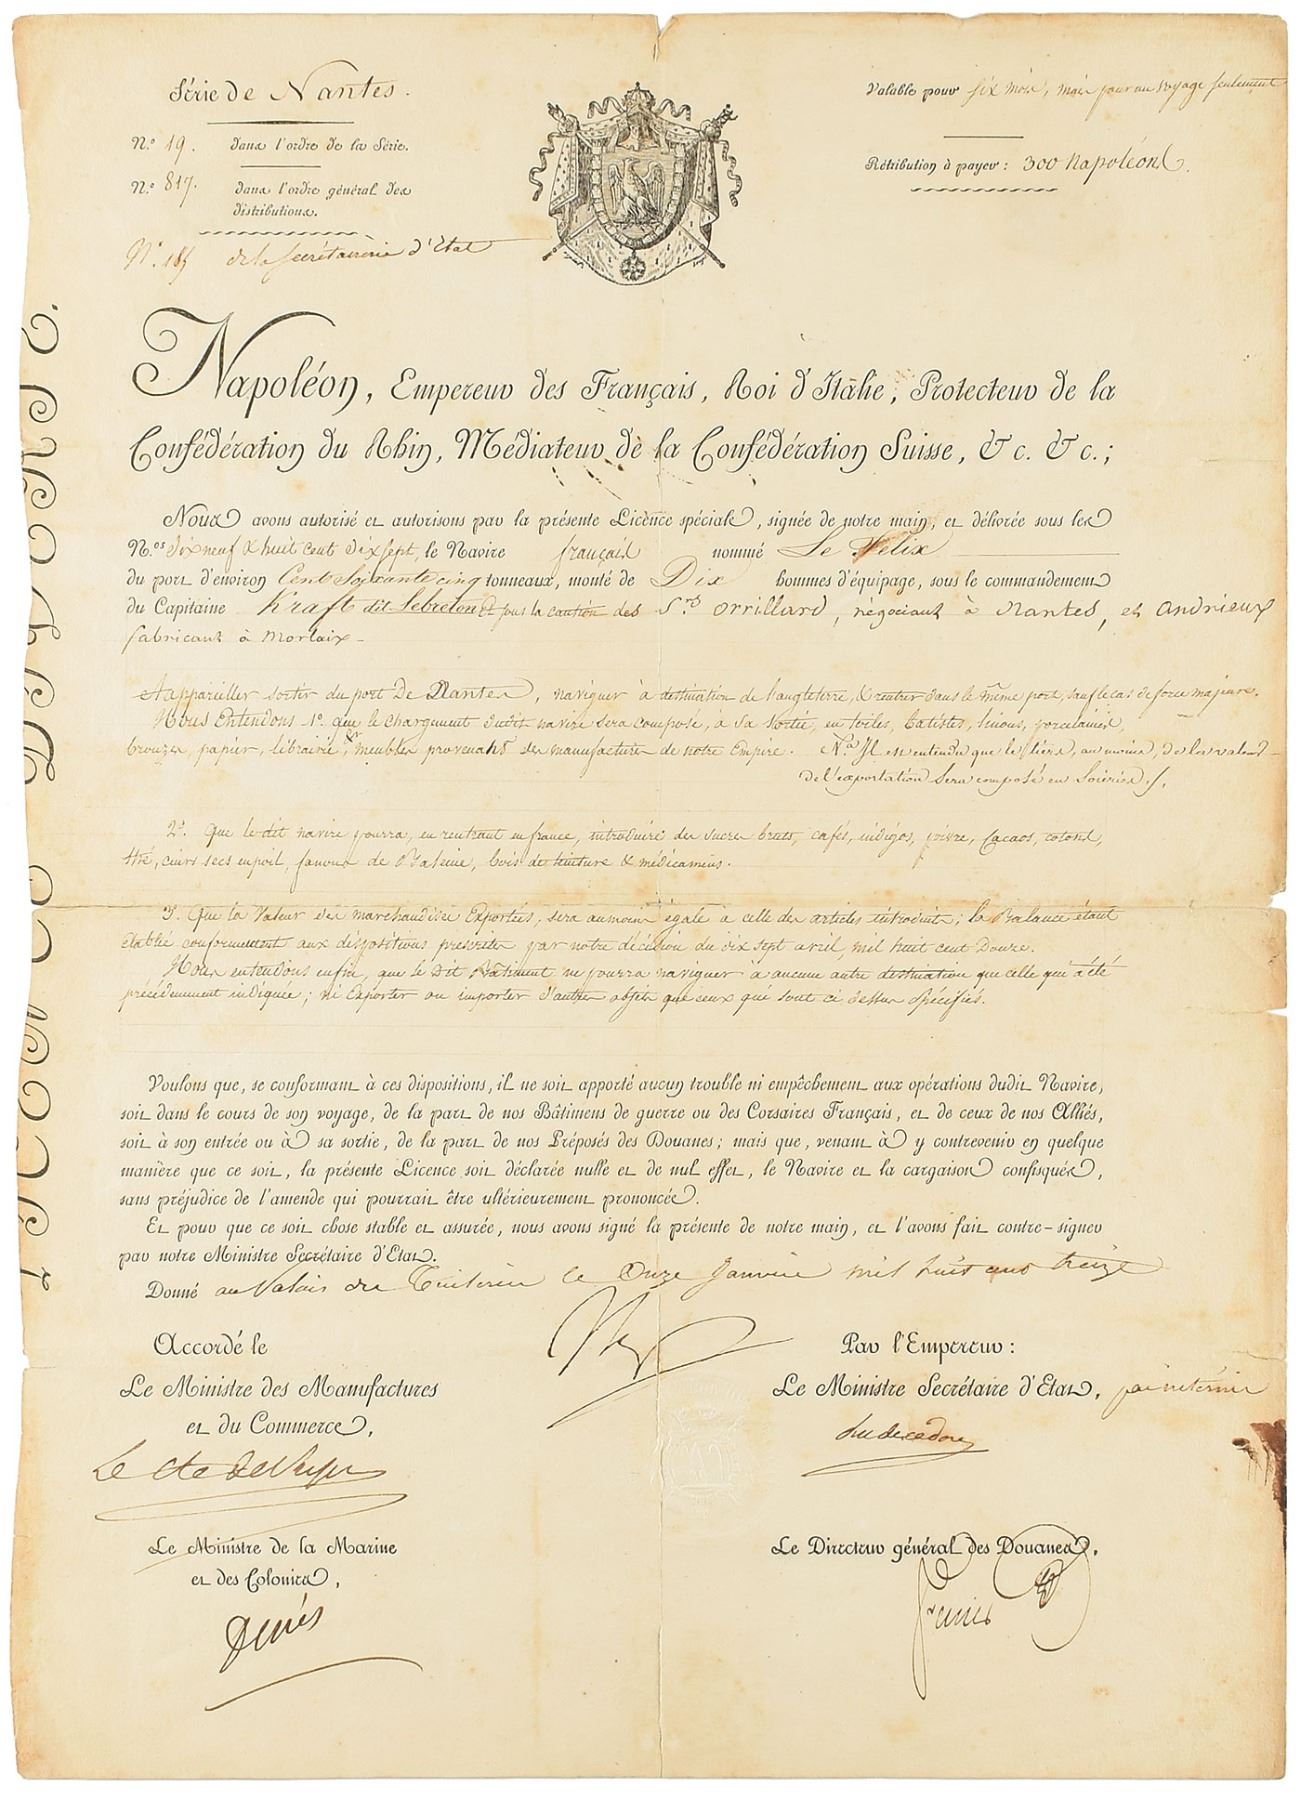 Série de Nantes.
N.º 19. dans l'ordre de la Série.
N.º 817. dans l'ordre général des
distributions.
N.º 185 de la Secrétairerie d'Etat
Valable pour six mois, mais pour un voyage seulement
Rétribution à payer : 300 Napoléons.
Napoléon, Empereur des Français, Roi d'Italie, Protecteur de la
Confédération du Rhin, Médiateur de la Confédération Suisse, &c. &c.;
Nous avons autorisé et autorisons par la présente Licence spéciale, signée de notre main, et délivrée sous les
N.os Dix neuf & huit cent dix sept, le Navire français nommé Le Felix
du port d'environ Cent Soixante cinq tonneaux, monté de Dix hommes d'équipage, sous le commandement
du Capitaine Kraft dit Lebreton et sous la caution des Srs Orrillard, négociant à Nantes, et Andrieux
fabricant à Morlaix
A appareiller sortir du port de Nantes, naviguer à destination de l'angleterre, & rentrer dans le même port, sauf le cas de force majeure.
Nous Entendons 1.º que le chargement dudit navire sera composé, à sa sortie, en toiles, batistes, linons, porcelaines,
bronzes, papier, librairie, et meubles provenant des manufactures de notre Empire. N.a Il est entendu que le tiers, au moins, de la valeur
de l'exportation sera composé en Soieries.
2.º Que le dit navire pourra, en rentrant en france, introduire des sucres bruts, cafés, indigos, poivre, Cacaos, cotons,
thé, cuirs secs en poil, fanons de Baleine, bois de teinture & médicamens.
3.º Que la Valeur des marchandises Exportées, sera au moins égale à celle des articles introduits; la Balance étant
établie conformément aux dispositions prescrites par notre décision du dix sept avril, mil huit cent Douze.
Nous entendons enfin, que le Dit Bâtiment ne pourra naviguer à aucune autre destination que celle qui a été
précédemment indiquée; ni Exporter ou importer d'autres objets que ceux qui sont ci dessus spécifiés.
Voulons que, se conformant à ces dispositions, il ne soit apporté aucun trouble ni empêchement aux opérations dudit Navire,
soit dans le cours de son voyage, de la part de nos Bâtimens de guerre ou des Corsaires Français, et de ceux de nos Alliés,
soit à son entrée ou à sa sortie, de la part de nos Préposés des Douanes; mais que, venant à y contrevenir en quelque
manière que ce soit, la présente Licence soit déclarée nulle et de nul effet, le Navire et la cargaison confisqués,
sans préjudice de l'amende qui pourrait être ultérieurement prononcée.
Et pour que ce soit chose stable et assurée, nous avons signé la présente de notre main, et l'avons fait contre-signer
par notre Ministre Secrétaire d'Etat.
Donné au Palais des Tuileries le Onze Janvier mil huit cent treize
Accordé le
Le Ministre des Manufactures
et du Commerce,
Le Cte de
Le Ministre de la Marine
et des Colonies,
Decrès
Np
Par l'Empereur :
Le Ministre Secrétaire d'Etat, par interim
duc de cadore
Le Directeur général des Douanes,
Ferrier